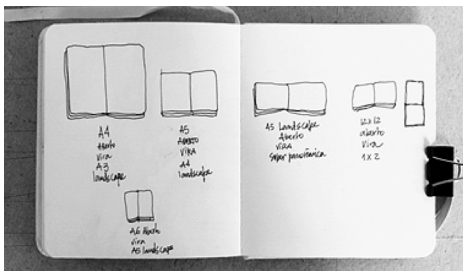 A4
Aberto
Vira
A3
landscape
A5
ABERTO
VIRA
A4
landscape
A6 Aberto
vira
A5 landscape
A5 landscape
Aberto
VIRA
Super panorâmica
12x12
aberto
Vira
1x2